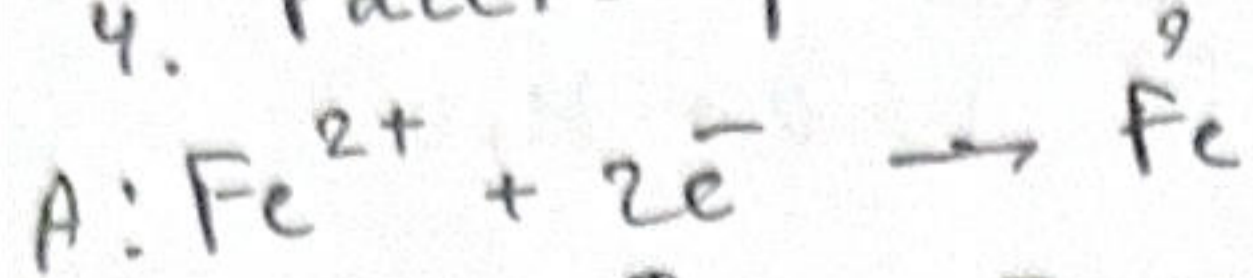 4.
A: Fe²⁺ + 2e⁻ → Fe⁰